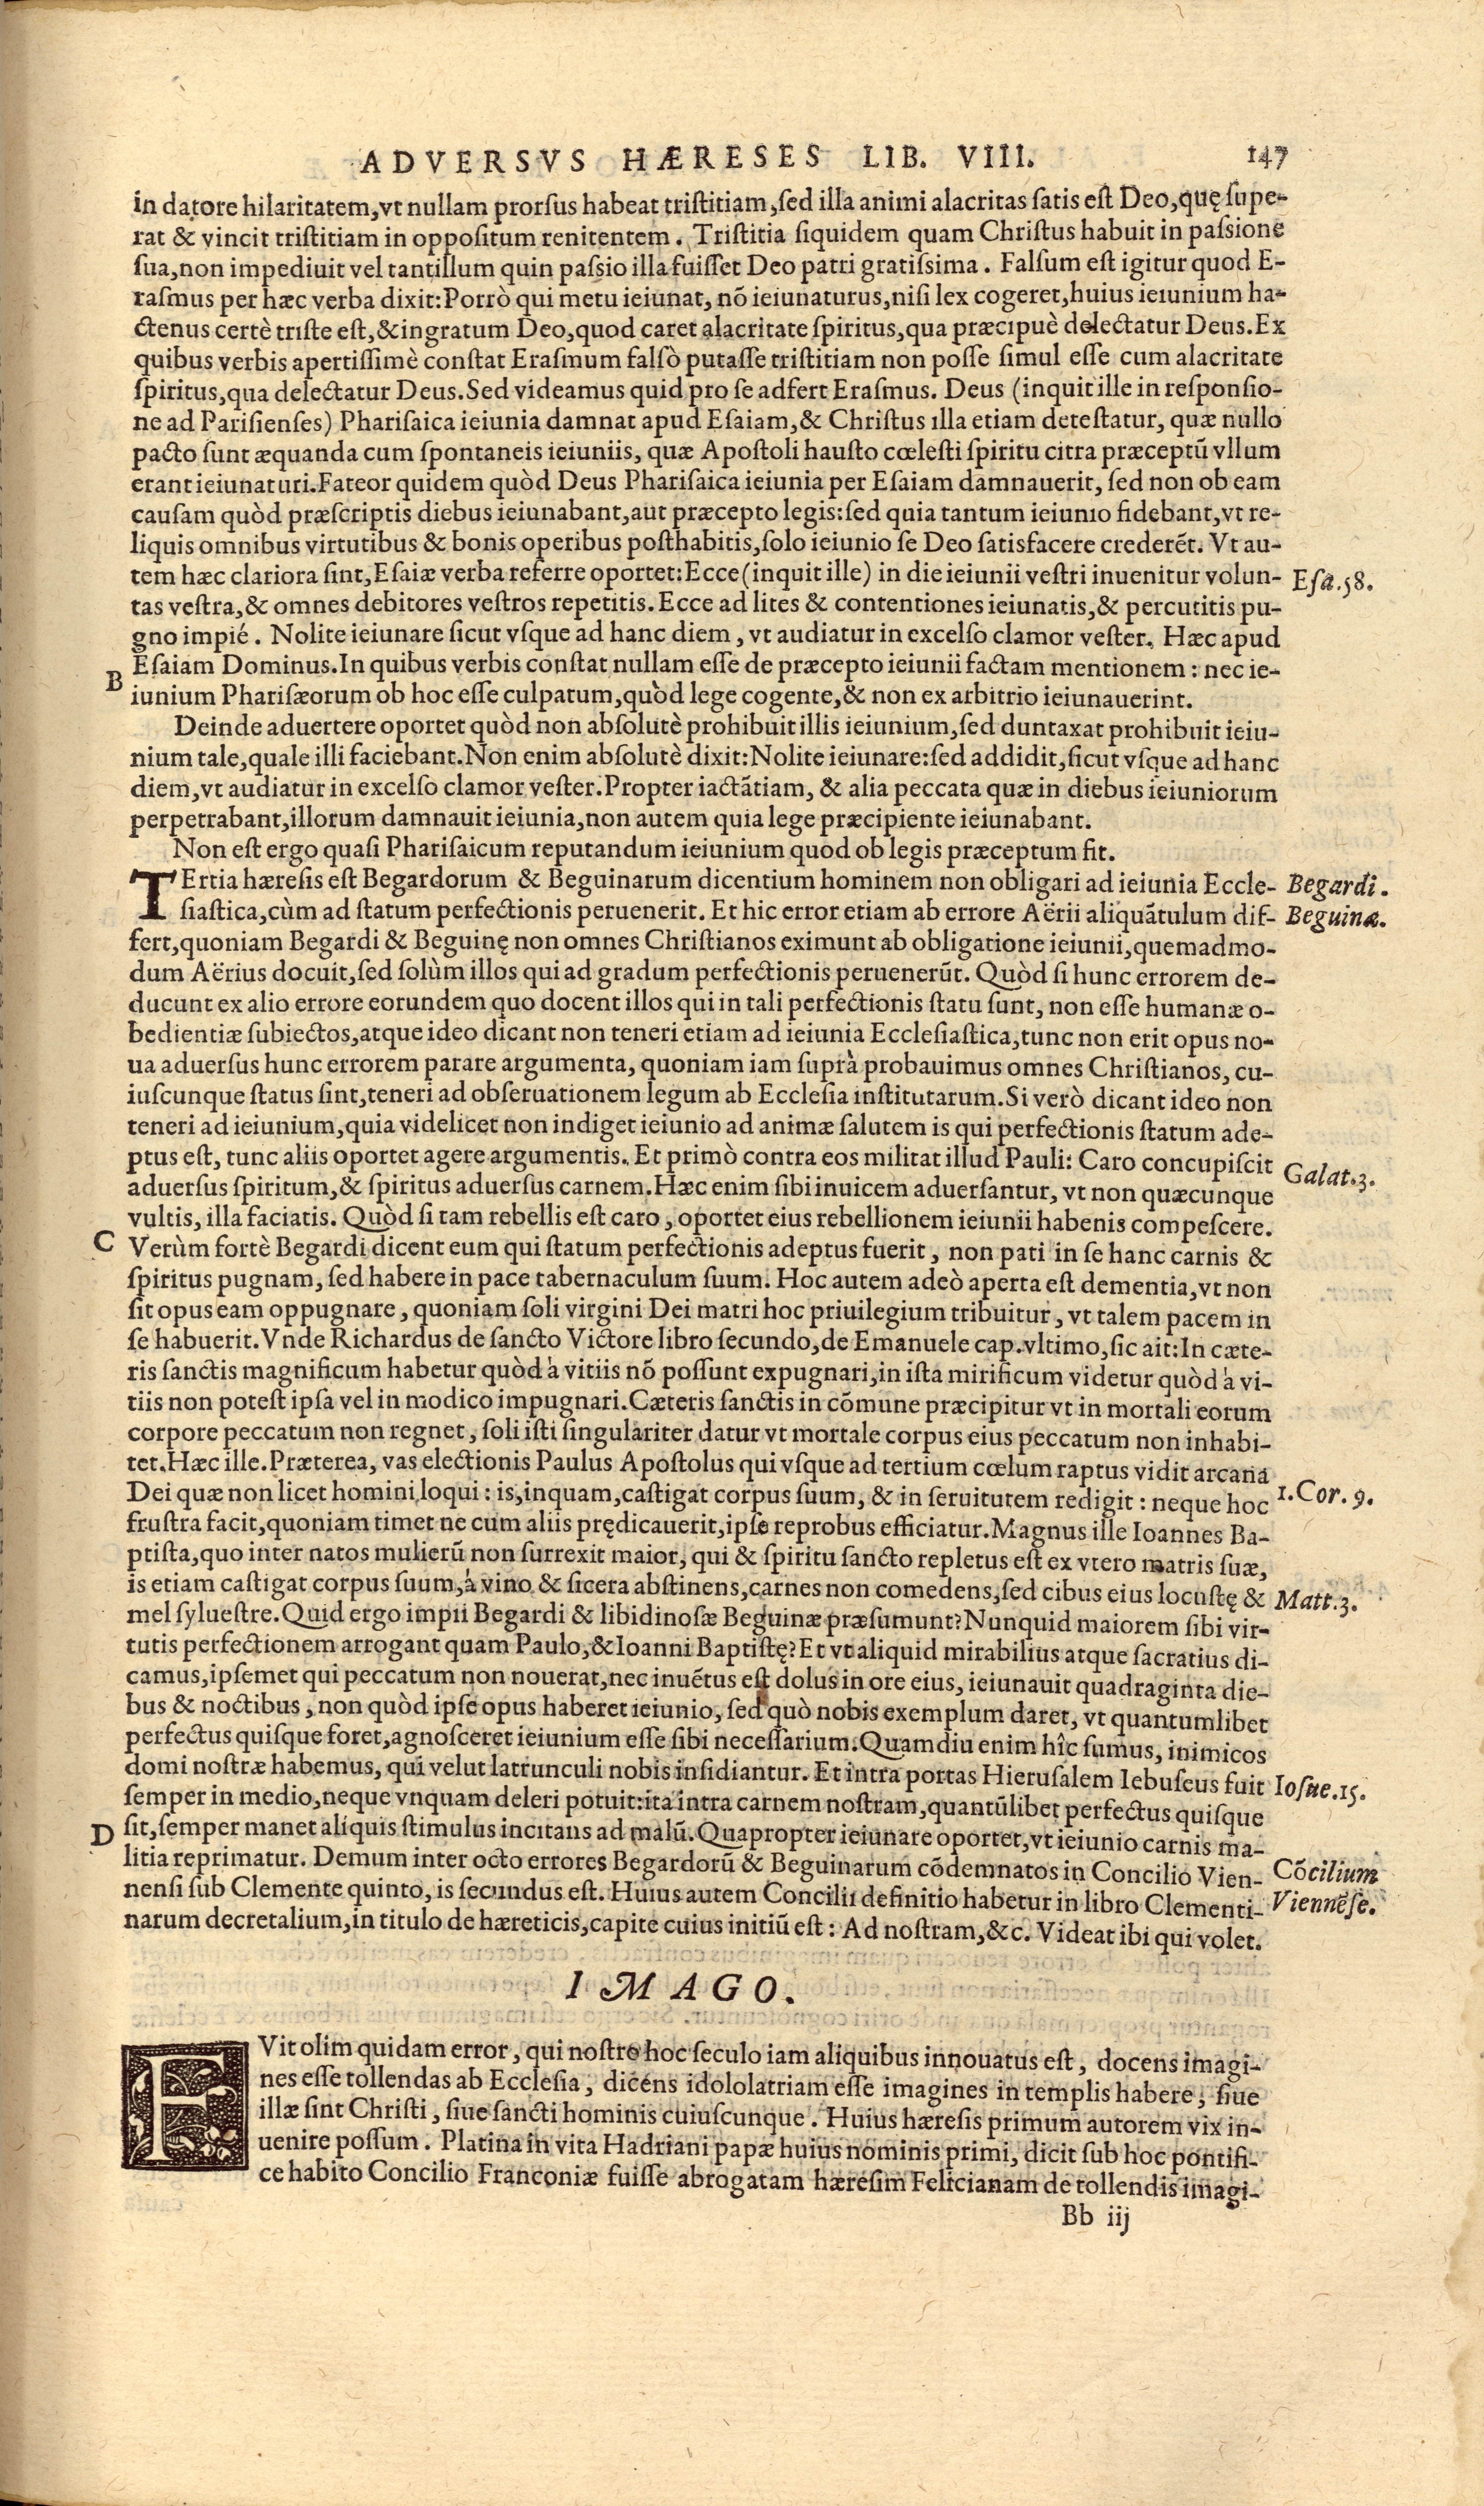 ADVERSVS HÆRESES LIB. VIII. 147
in datore hilaritatem, vt nullam prorsus habeat tristitiam, sed illa animi alacritas satis est Deo, quę supe-
rat & vincit tristitiam in oppositum renitentem. Tristitia siquidem quam Christus habuit in passione
sua, non impediuit vel tantillum quin passio illa fuisset Deo patri gratissima. Falsum est igitur quod E-
rasmus per hæc verba dixit: Porrò qui metu ieiunat, nō ieiunaturus, nisi lex cogeret, huius ieiunium ha-
ctenus certè triste est, & ingratum Deo, quod caret alacritate spiritus, qua præcipuè delectatur Deus. Ex
quibus verbis apertissimè constat Erasmum falsò putasse tristitiam non posse simul esse cum alacritate
spiritus, qua delectatur Deus. Sed videamus quid pro se adfert Erasmus. Deus (inquit ille in responsio-
ne ad Parisienses) Pharisaica ieiunia damnat apud Esaiam, & Christus illa etiam detestatur, quæ nullo
pacto sunt æquanda cum spontaneis ieiuniis, quæ Apostoli hausto cœlesti spiritu citra præceptū vllum
erant ieiunaturi. Fateor quidem quòd Deus Pharisaica ieiunia per Esaiam damnauerit, sed non ob eam
causam quòd præscriptis diebus ieiunabant, aut præcepto legis: sed quia tantum ieiunio fidebant, vt re-
liquis omnibus virtutibus & bonis operibus posthabitis, solo ieiunio se Deo satisfacere crederēt. Vt au-
tem hæc clariora sint, Esaiæ verba referre oportet: Ecce (inquit ille) in die ieiunii vestri inuenitur volun- Esa.58.
tas vestra, & omnes debitores vestros repetitis. Ecce ad lites & contentiones ieiunatis, & percutitis pu-
gno impié. Nolite ieiunare sicut vsque ad hanc diem, vt audiatur in excelso clamor vester. Hæc apud
B Esaiam Dominus. In quibus verbis constat nullam esse de præcepto ieiunii factam mentionem: nec ie-
iunium Pharisæorum ob hoc esse culpatum, quòd lege cogente, & non ex arbitrio ieiunauerint.
Deinde aduertere oportet quòd non absolutè prohibuit illis ieiunium, sed duntaxat prohibuit ieiu-
nium tale, quale illi faciebant. Non enim absolutè dixit: Nolite ieiunare: sed addidit, sicut vsque ad hanc
diem, vt audiatur in excelso clamor vester. Propter iactātiam, & alia peccata quæ in diebus ieiuniorum
perpetrabant, illorum damnauit ieiunia, non autem quia lege præcipiente ieiunabant.
Non est ergo quasi Pharisaicum reputandum ieiunium quod ob legis præceptum fit.
TErtia hæresis est Begardorum & Beguinarum dicentium hominem non obligari ad ieiunia Eccle- Begardi.
siastica, cùm ad statum perfectionis peruenerit. Et hic error etiam ab errore Aërii aliquātulum dif- Beguinæ.
fert, quoniam Begardi & Beguinę non omnes Christianos eximunt ab obligatione ieiunii, quemadmo-
dum Aërius docuit, sed solùm illos qui ad gradum perfectionis peruenerūt. Quòd si hunc errorem de-
ducunt ex alio errore eorundem quo docent illos qui in tali perfectionis statu sunt, non esse humanæ o-
bedientiæ subiectos, atque ideo dicant non teneri etiam ad ieiunia Ecclesiastica, tunc non erit opus no-
ua aduersus hunc errorem parare argumenta, quoniam iam suprà probauimus omnes Christianos, cu-
iuscunque status sint, teneri ad obseruationem legum ab Ecclesia institutarum. Si verò dicant ideo non
teneri ad ieiunium, quia videlicet non indiget ieiunio ad animæ salutem is qui perfectionis statum ade-
ptus est, tunc aliis oportet agere argumentis. Et primò contra eos militat illud Pauli: Caro concupiscit Galat.3.
aduersus spiritum, & spiritus aduersus carnem. Hæc enim sibi inuicem aduersantur, vt non quæcunque
vultis, illa faciatis. Quòd si tam rebellis est caro, oportet eius rebellionem ieiunii habenis compescere.
C Verùm fortè Begardi dicent eum qui statum perfectionis adeptus fuerit, non pati in se hanc carnis &
spiritus pugnam, sed habere in pace tabernaculum suum. Hoc autem adeò aperta est dementia, vt non
sit opus eam oppugnare, quoniam soli virgini Dei matri hoc priuilegium tribuitur, vt talem pacem in
se habuerit. Vnde Richardus de sancto Victore libro secundo, de Emanuele cap. vltimo, sic ait: In cæte-
ris sanctis magnificum habetur quòd à vitiis nō possunt expugnari, in ista mirificum videtur quòd à vi-
tiis non potest ipsa vel in modico impugnari. Cæteris sanctis in cōmune præcipitur vt in mortali eorum
corpore peccatum non regnet, soli isti singulariter datur vt mortale corpus eius peccatum non inhabi-
tet. Hæc ille. Præterea, vas electionis Paulus Apostolus qui vsque ad tertium cœlum raptus vidit arcana
Dei quæ non licet homini loqui: is, inquam, castigat corpus suum, & in seruitutem redigit: neque hoc 1.Cor.9.
frustra facit, quoniam timet ne cum aliis prędicauerit, ipse reprobus efficiatur. Magnus ille Ioannes Ba-
ptista, quo inter natos mulierū non surrexit maior, qui & spiritu sancto repletus est ex vtero matris suæ,
is etiam castigat corpus suum, à vino & sicera abstinens, carnes non comedens, sed cibus eius locustę & Matt.3.
mel syluestre. Quid ergo impii Begardi & libidinosæ Beguinæ præsumunt? Nunquid maiorem sibi vir-
tutis perfectionem arrogant quam Paulo, & Ioanni Baptistę? Et vt aliquid mirabilius atque sacratius di-
camus, ipsemet qui peccatum non nouerat, nec inuētus est dolus in ore eius, ieiunauit quadraginta die-
bus & noctibus, non quòd ipse opus haberet ieiunio, sed quò nobis exemplum daret, vt quantumlibet
perfectus quisque foret, agnosceret ieiunium esse sibi necessarium. Quamdiu enim hîc sumus, inimicos
domi nostræ habemus, qui velut latrunculi nobis insidiantur. Et intra portas Hierusalem Iebuseus fuit Iosue.15.
semper in medio, neque vnquam deleri potuit: ita intra carnem nostram, quantūlibet perfectus quisque
D sit, semper manet aliquis stimulus incitans ad malū. Quapropter ieiunare oportet, vt ieiunio carnis ma-
litia reprimatur. Demum inter octo errores Begardorū & Beguinarum cōdemnatos in Concilio Vien- Cōcilium
nensi sub Clemente quinto, is secundus est. Huius autem Concilii definitio habetur in libro Clementi- Viennēse.
narum decretalium, in titulo de hæreticis, capite cuius initiū est: Ad nostram, &c. Videat ibi qui volet.
IMAGO.
FVit olim quidam error, qui nostro hoc seculo iam aliquibus innouatus est, docens imagi-
nes esse tollendas ab Ecclesia, dicens idololatriam esse imagines in templis habere, siue
illæ sint Christi, siue sancti hominis cuiuscunque. Huius hæresis primum autorem vix in-
uenire possum. Platina in vita Hadriani papæ huius nominis primi, dicit sub hoc pontifi-
ce habito Concilio Franconiæ fuisse abrogatam hæresim Felicianam de tollendis imagi-
Bb iij